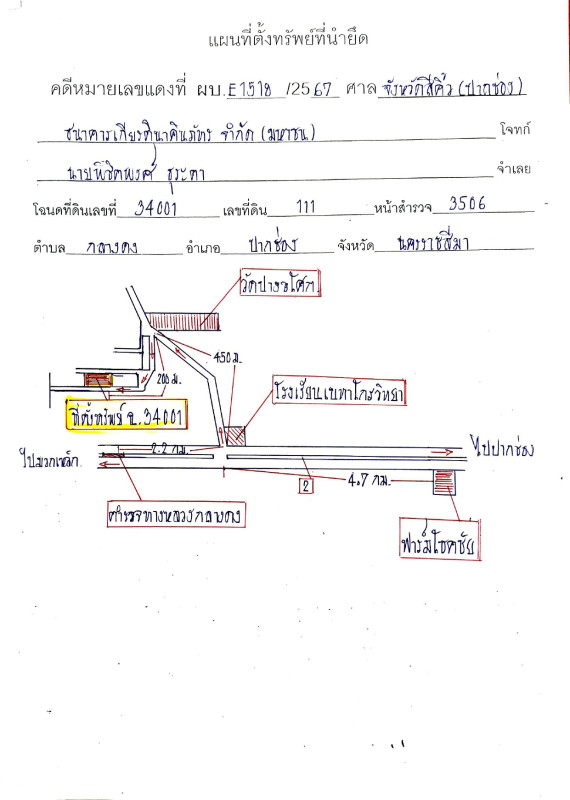 แผนที่ตั้งทรัพย์ที่นำยึด
คดีหมายเลขแดงที่ ผบ. E1518 /2567 ศาล จังหวัดสีคิ้ว (ปากช่อง)
ธนาคารเกียรตินาคินภัทร จำกัด (มหาชน) โจทก์
นายพิชิตพงศ์ ธุระตา จำเลย
โฉนดที่ดินเลขที่ 34001 เลขที่ดิน 111 หน้าสำรวจ 3506
ตำบล กลางดง อำเภอ ปากช่อง จังหวัด นครราชสีมา
วัดปางอโศก
450 ม.
200 ม.
โรงเรียนเบทาโกรวิทยา
ที่ตั้งทรัพย์ ฉ.34001
2.2 กม.
ไปปากช่อง
ไปมวกเหล็ก
2
4.7 กม.
ตำรวจทางหลวงกลางดง
ฟาร์มโชคชัย